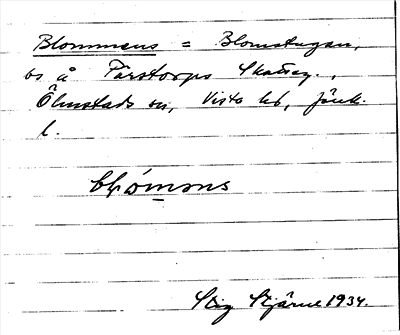 Blommens = Blomstugan,
bs å Fårstorps Skatteg.,
Ölmstads sn, Vista hd, Jönk.
l.
Stig Stjärne 1934.